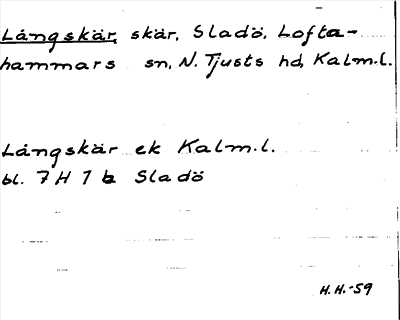 Långskär, skär, Sladö, Lofta-
hammars sn, N. Tjusts hd, Kalm.l.
Långskär ek Kalm.l.
bl. 7 H 1 b Sladö
H.H.-59